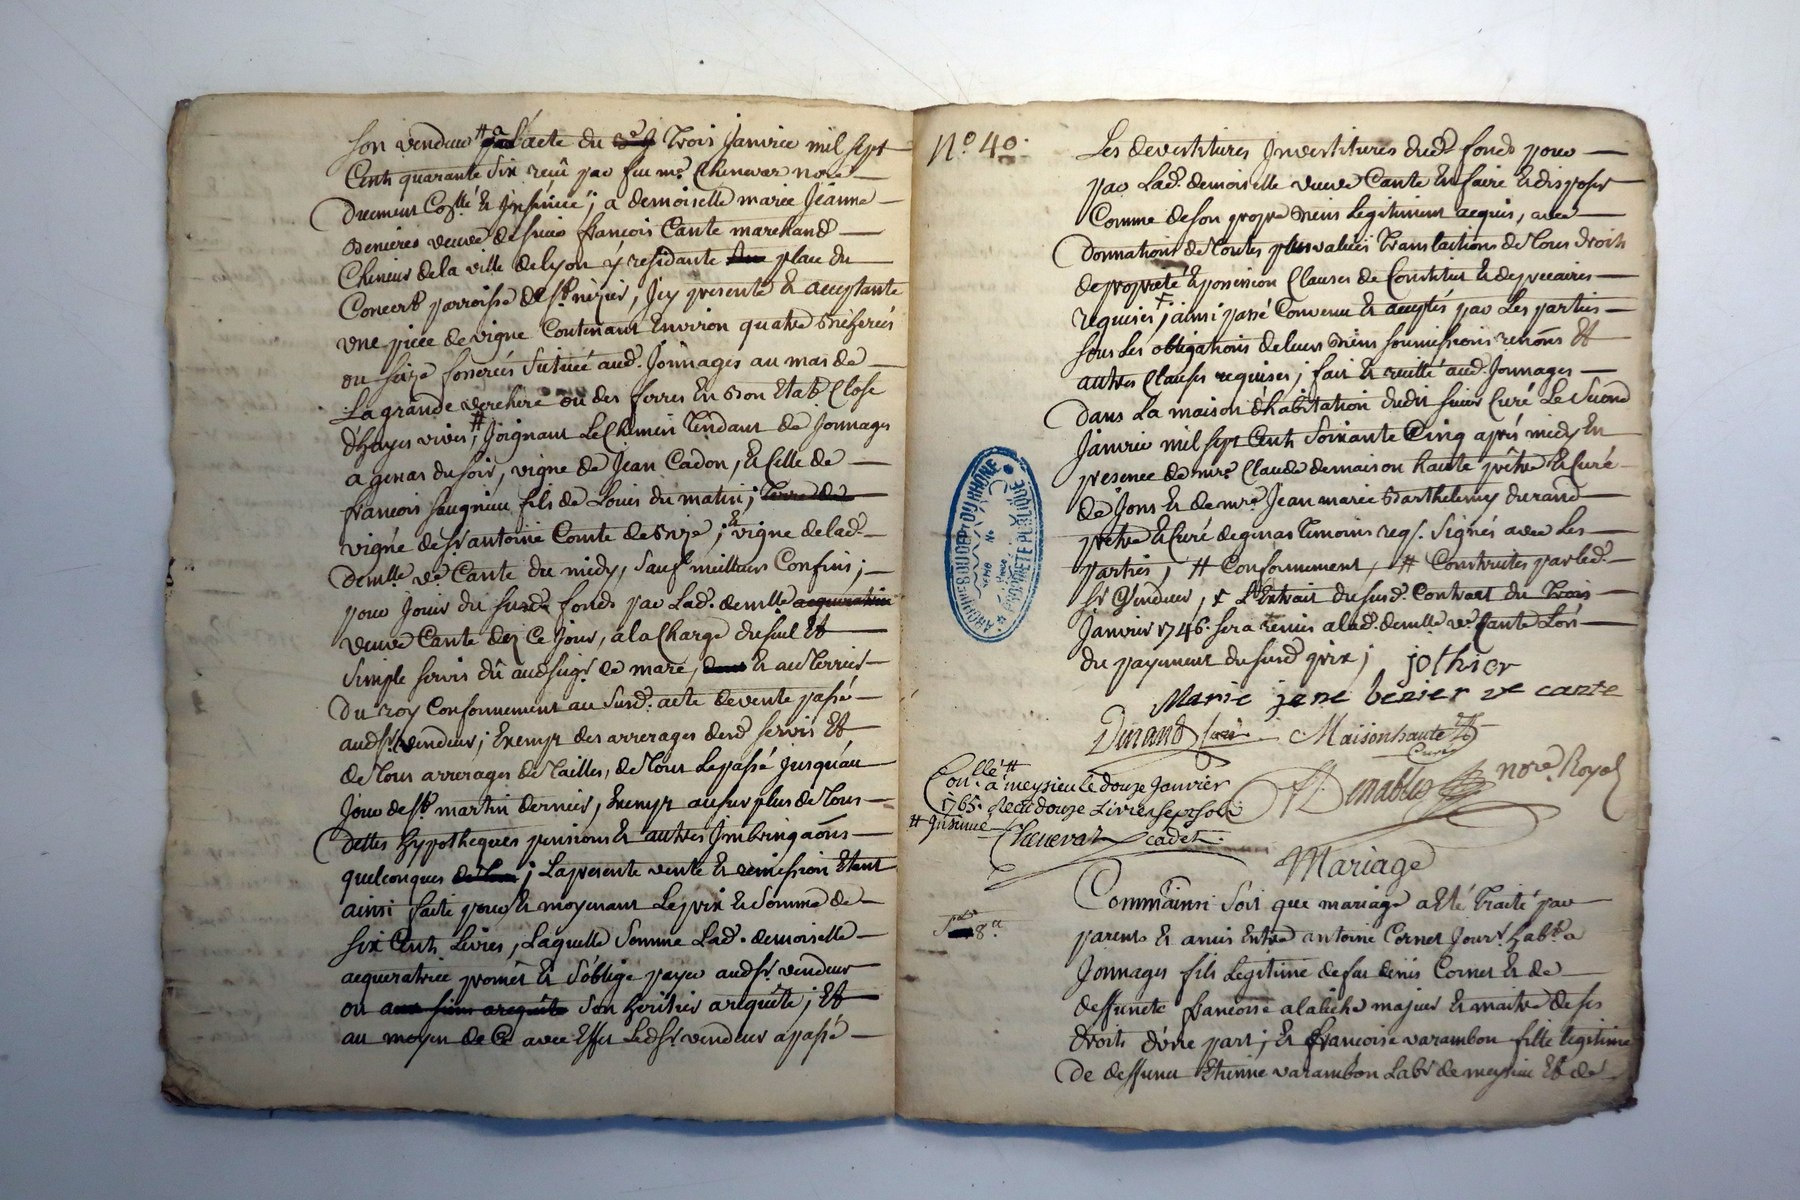 son vendeur # a l'acte du trois Janvier mil sept
Cent quarante Six reçû par feu mre Chenevar nore
Duement Collé et Insinüé ; a demoiselle marie Jeanne
Benieres veuve de sieur françois Cante marchand
Chineur de la ville de Lyon y residante place du
Concert parroisse de St nizier, Icy presente et acceptante
une piece de vigne Contenant Environ quatre bicherées
ou seize fosserées Scituée aud. Jonnages au mas de
La grande verchere ou des ferres En Son Etat Close
d'hayes vives, # Joignant Le Chemin Tendant de Jonnages
a genas du soir, vigne de Jean Cadon, et celle de
françois saugnieu fils de Louis du matin ; terre de
vigne de sr antoine Comte de bize ; et vigne de lad.
demlle ve Cante du midy, Sauf meilleurs Confins ;
pour Jouir du susd. fonds par Lad. demlle acqueratrice
veuve Cante dez Ce jour, a la Charge du seul et
Simple servis dû aud seigr de mare, et au terrier
Du roy Conformement au susd. acte de vente passé
aud sr vendeur ; Exempt des arrerages dud servis Et
de tous arrerages de Tailles, de tout Le passé Jusqu'au
Jour de St martin dernier, Exempt au surplus de tous
dettes hypotheques pensions et autres Imbringaôns
quelconques ; La presente vente et demission Etant
ainsi faite pour et moyenant Le prix et Somme de
six Cents Livres, Laquelle Somme Lad. demoiselle
acqueratrice promet et s'oblige payer aud sr vendeur
ou aux siens a requête Son heritier a requête ; Et
au moyen de Ce avec Effet Led sr vendeur a passé
No 40.
Les devestitures Investitures dud. fonds pour
par Lad. demoiselle veuve Cante En faire et disposer
Comme de son propre biens legitiment acquis, avec
donnations de toutes plus valües translactions de tous droits
de proprieté et possession Clauses de Constitut et de precaires
requises, ainsi passé Convenu et acceptés par Les parties
sous Les obligations de leurs biens soumissions renôns et
autres Clauses requises ; fait et recitté aud. Jonnages
dans La maison d'habitation dudit sieur Curé Le Second
Janvier mil sept Cent Soixante Cinq après midy En
presence de mre Claude demaison haute prêtre et Curé
de Jons et de mre Jean marie Barthelemy durand
prêtre et Curé de genas temoins req. Signés avec Les
parties, # Conformement, # Construites par led.
sr Vendeur, + L'Extrait du susd. Contract du Trois
Janvier 1746. sera remis a lad. demlle ve Cante Lors
du payement du susd prix ; jothier
Marie jene benier ve cante
Durand Curé Maisonhaute
Curé
Collé # a meysieu le douze Janvier
1765. Recû douze Livres sept sols
# Insinué
Chenevar cadet
Dinables nore Royal
Mariage
Comm'ainsi Soit que mariage a Eté Traité par
8a
parents et amis Entre antoine Cornet Jourr habt a
Jonnages fils Legitime de feu denis Cornet et de
deffuncte françoise alabiche majeur et maitre de ses
droits d'une part ; et françoise varambon fille legitime
De deffunct Etienne varambon Labr de meysieu Et de
ARCHIVES DU DEPT DU RHÔNE
PROPRIÉTÉ PUBLIQUE